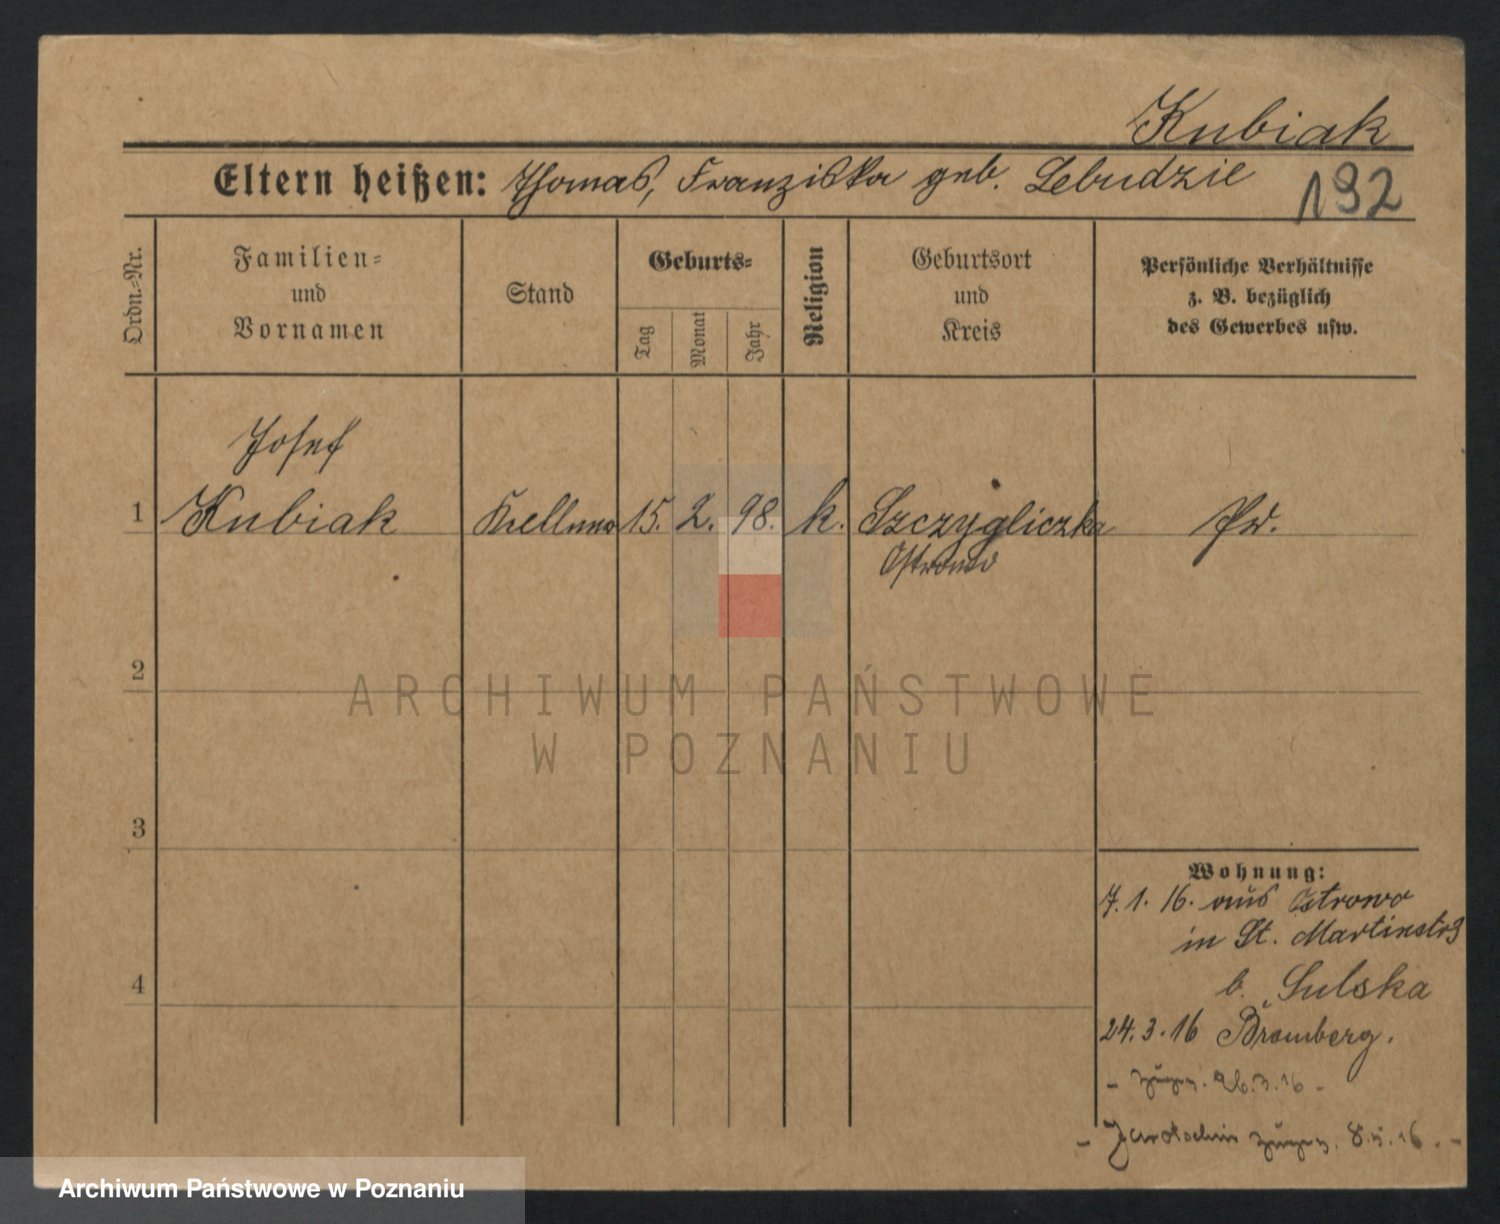 Kubiak
Eltern heißen: Thomas, Franziska geb. Lebudzie
192
Ordn.=Nr.
Familien=
und
Vornamen
Stand
Geburts=
Tag
Monat
Jahr
Religion
Geburtsort
und
Kreis
Persönliche Verhältnisse
z. B. bezüglich
des Gewerbes usw.
Josef
1 Kubiak Kellner 15. 2. 98. k. Szczygliczka Pr.
Ostrowo
2
3
4
Wohnung:
7. 1. 16. aus Ostrowo
in St. Martinstr 3
b. Sulska
24. 3. 16 Bromberg.
- zugez. 26.3.16 -
- Jarotschin zugez. 8.5.16. -
ARCHIWUM PAŃSTWOWE
W POZNANIU
Archiwum Państwowe w Poznaniu